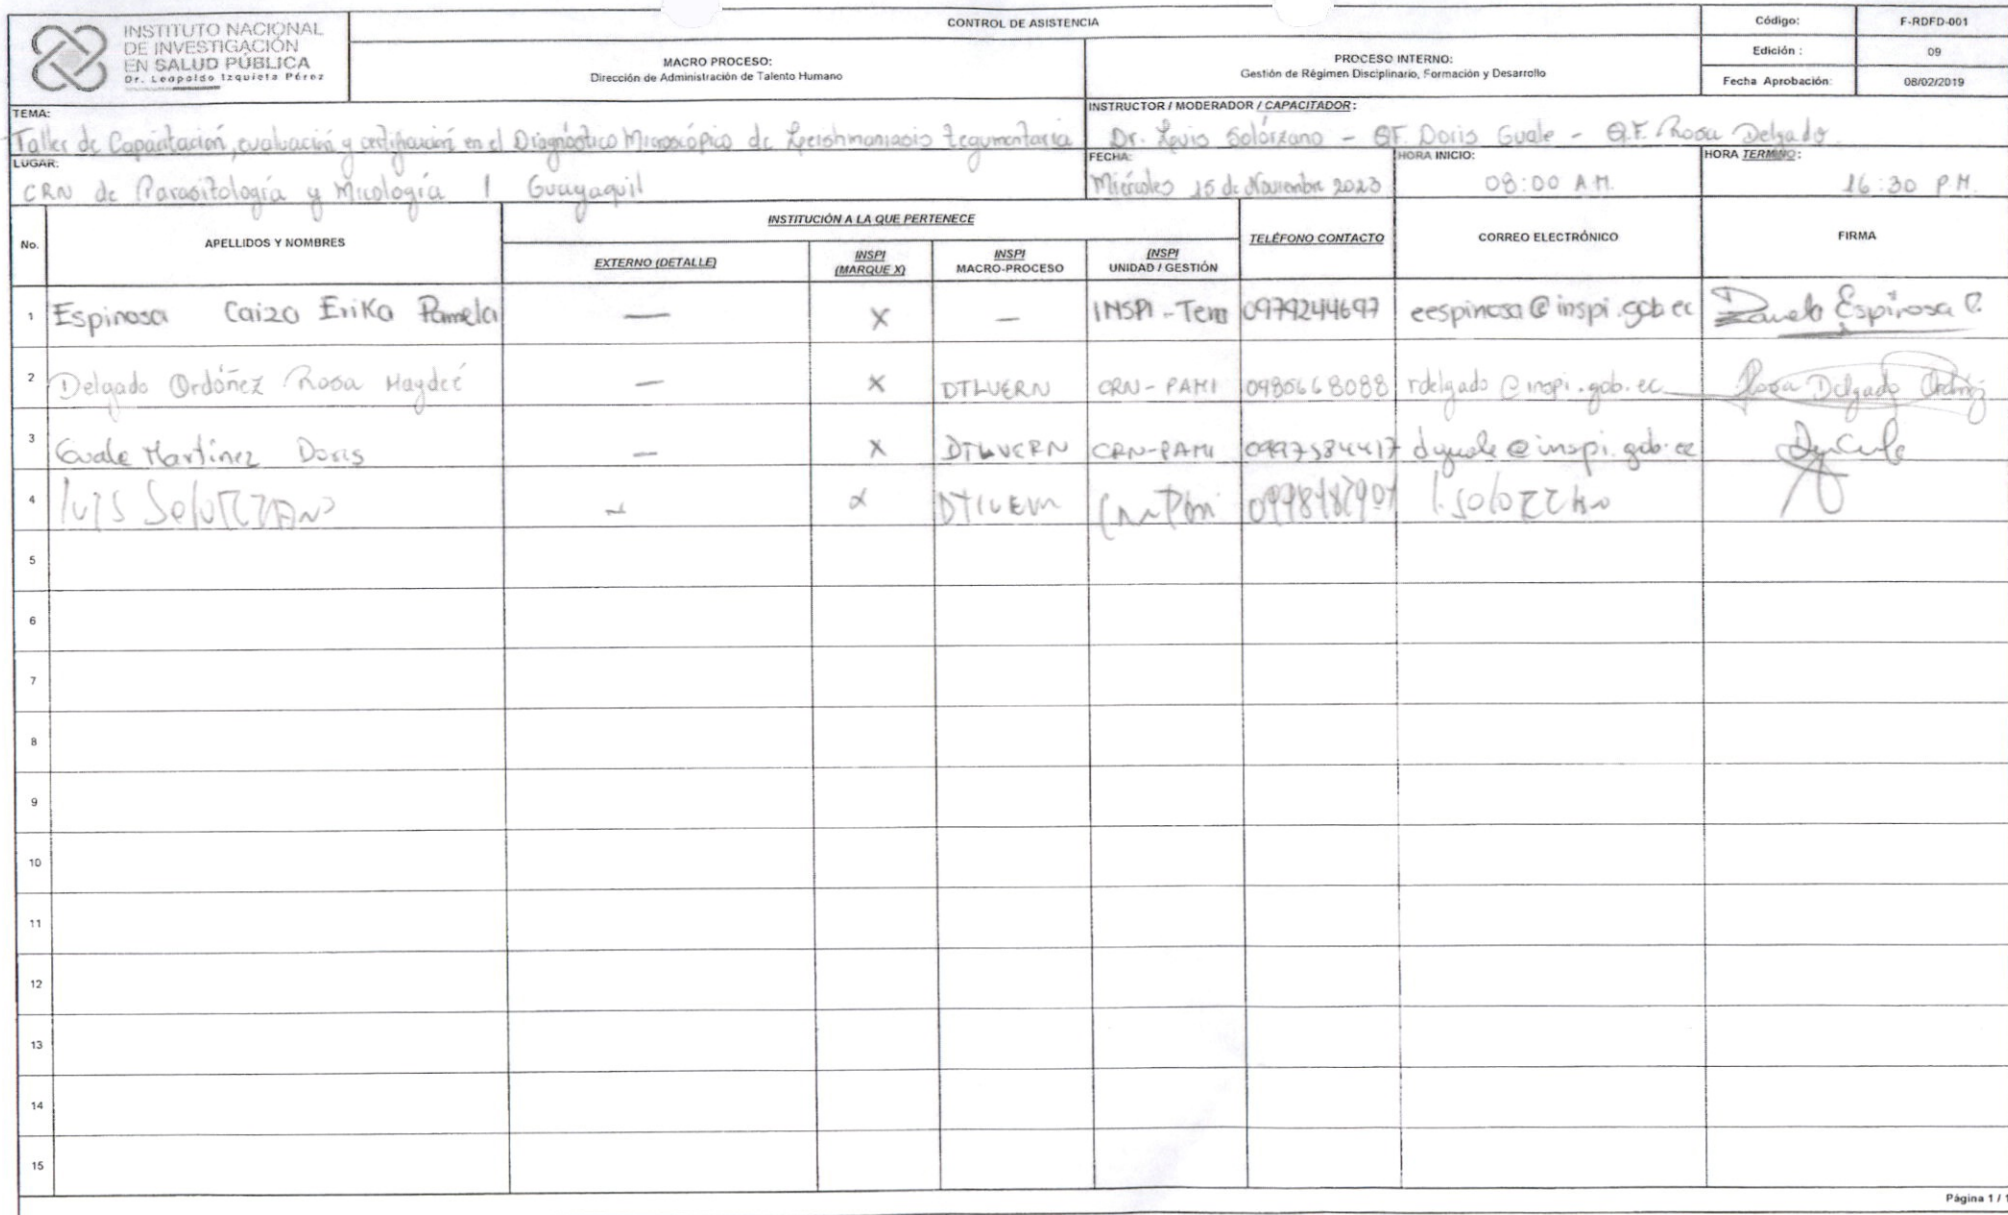 INSTITUTO NACIONAL
DE INVESTIGACIÓN
EN SALUD PÚBLICA
Dr. Leopoldo Izquieta Pérez
CONTROL DE ASISTENCIA
MACRO PROCESO:
Dirección de Administración de Talento Humano
PROCESO INTERNO:
Gestión de Régimen Disciplinario, Formación y Desarrollo
Código: F-RDFD-001
Edición : 09
Fecha Aprobación: 08/02/2019
TEMA:
Taller de Capacitación, evaluación y certificación en el Diagnóstico Microscópico de Leishmaniasis tegumentaria
INSTRUCTOR / MODERADOR / CAPACITADOR:
Dr. Luis Solórzano - QF. Doris Guale - Q.F. Rosa Delgado
LUGAR:
CRN de Parasitología y Micología / Guayaquil
FECHA:
Miércoles 15 de Noviembre 2023
HORA INICIO:
08:00 A.M.
HORA TERMINO:
16:30 P.M.
No. APELLIDOS Y NOMBRES INSTITUCIÓN A LA QUE PERTENECE TELÉFONO CONTACTO CORREO ELECTRÓNICO FIRMA
EXTERNO (DETALLE) INSPI (MARQUE X) INSPI MACRO-PROCESO INSPI UNIDAD / GESTIÓN
1 Espinosa Caiza Erika Pamela — X — INSPI - Tena 0979244697 eespinosa@inspi.gob.ec Pamela Espinosa C.
2 Delgado Ordóñez Rosa Haydeé — X DTLVERN CRN-PAMI 0980668088 rdelgado@inspi.gob.ec Rosa Delgado
3 Guale Martínez Doris — X DTLVERN CRN-PAMI 0997584417 dguale@inspi.gob.ec
4 Luis Solorzano — X
5
6
7
8
9
10
11
12
13
14
15
Página 1 / 1